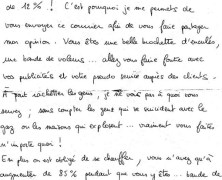 de 12% ! C'est pourquoi je me permets de
vous envoyer ce courrier afin de vous faire partager
mon opinion. Vous êtes une belle brochette d'enculés,
une bande de voleurs... allez vous faire foutre avec
vos publicités et votre pseudo service auprès des clients.
A part racketter les gens, je ne vois pas à quoi vous
servez ; sans compter les gens qui se suicident avec le
gaz ou les maisons qui explosent... vraiment vous faites
n'importe quoi !
En plus on est obligé de se chauffer, vous n'avez qu'à
augmenter de 85% pendant que vous y êtes... bande de